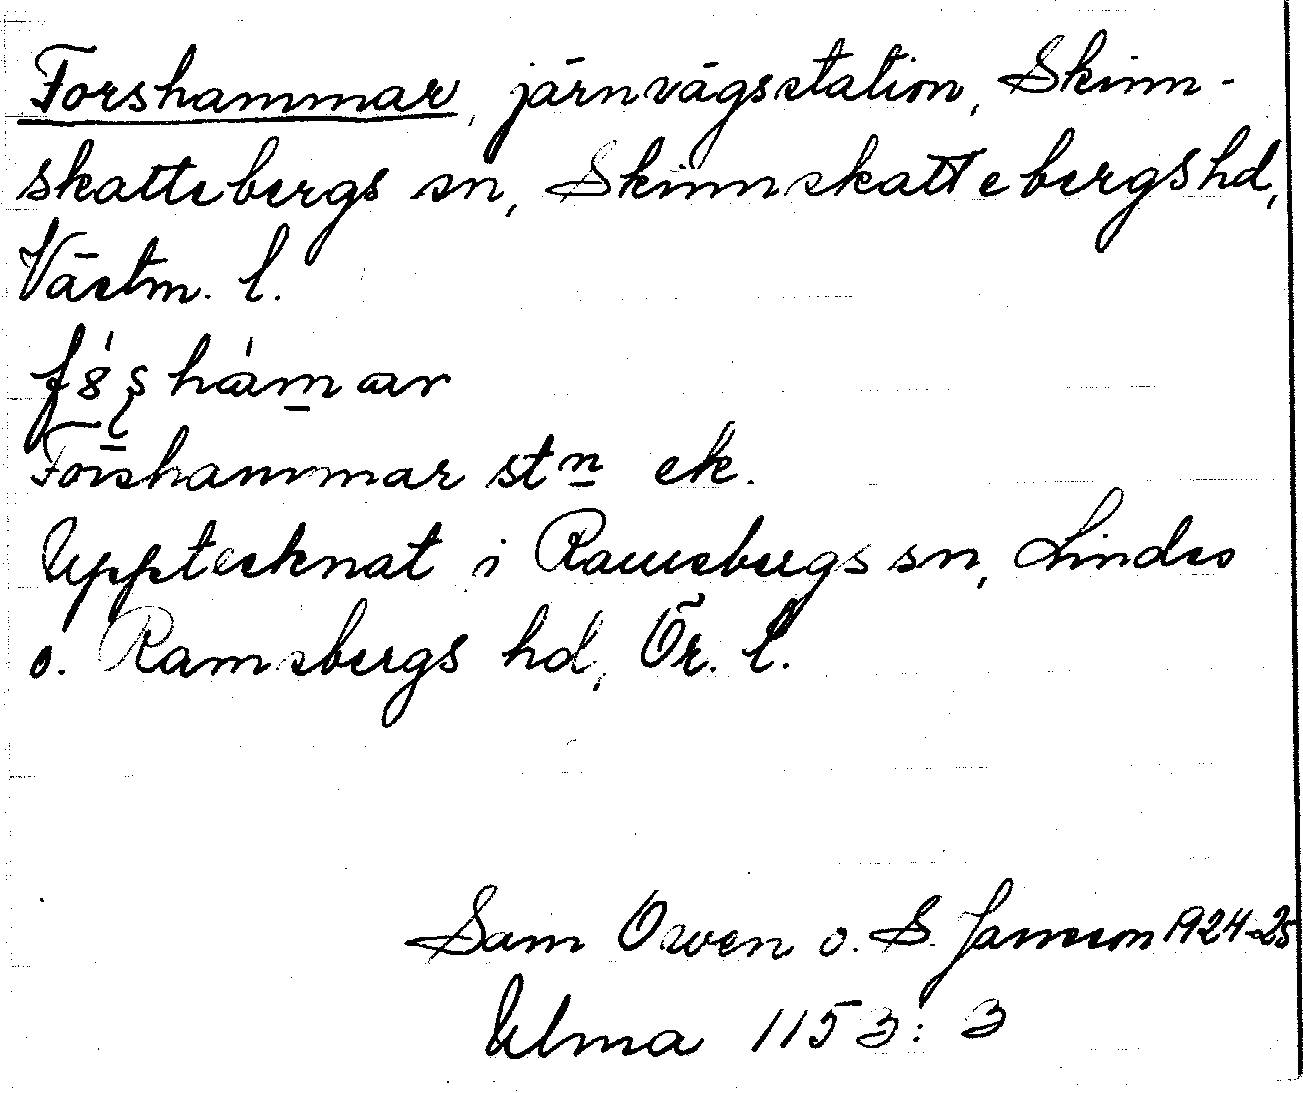 Forshammar, järnvägsstation, Skinn-
skattebergs sn, Skinnskattebergs hd,
Västm. l.
Forshammar stn ek.
Upptecknat i Ramsbergs sn, Lindes
o. Ramsbergs hd, Ör. l.
Sam Owen o. S. Jansson 1924-25
Ulma 1153:3